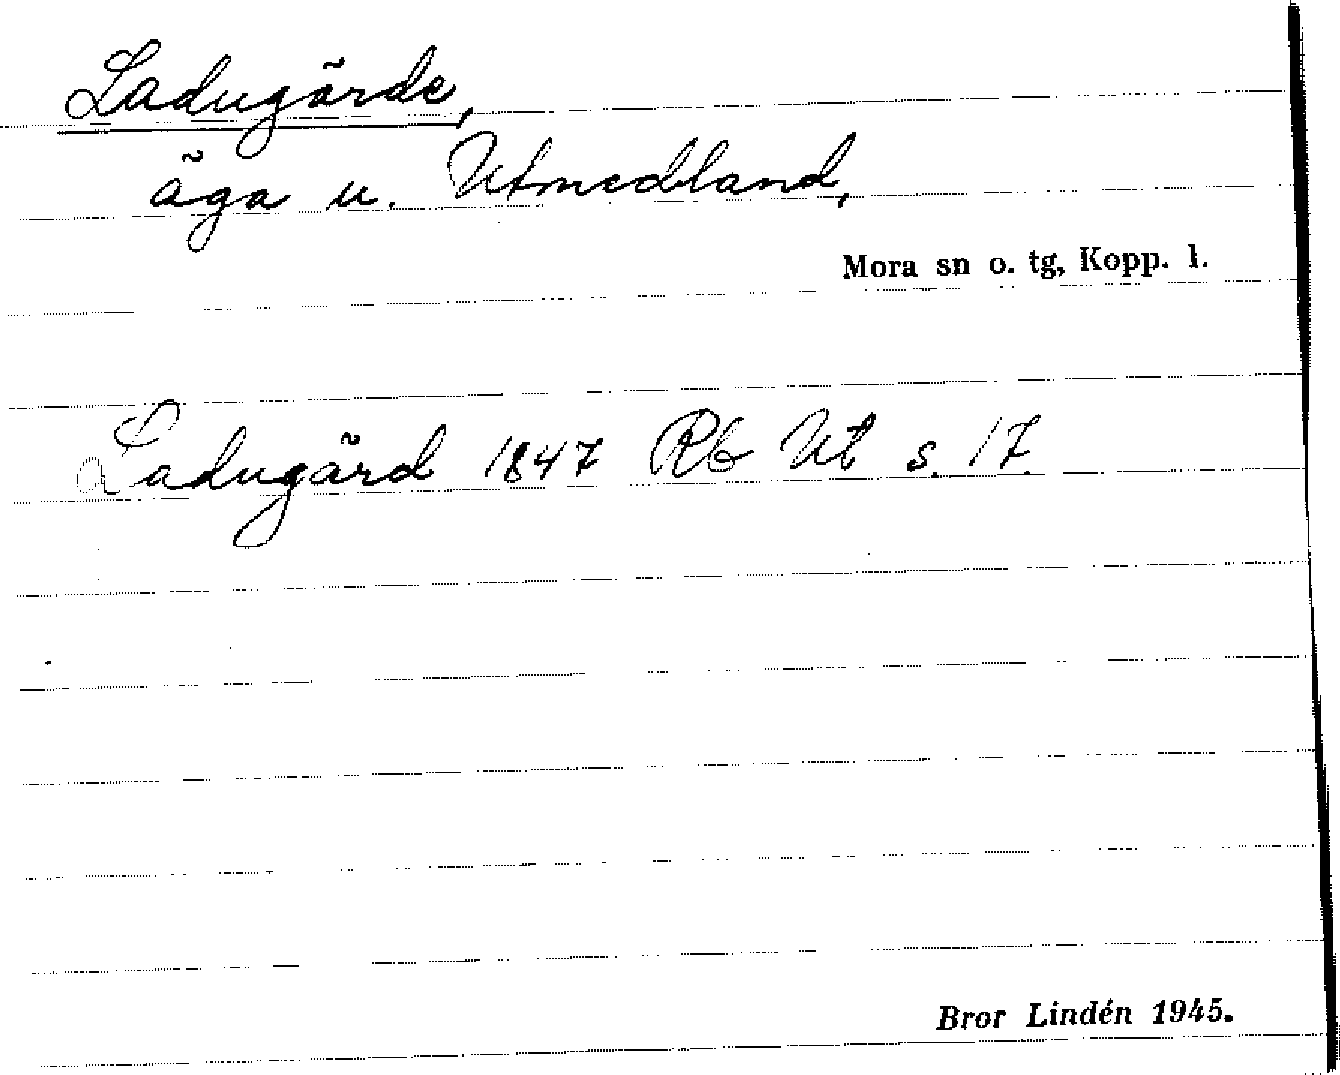 Ladugårde,
äga u. Utmedland,
Mora sn o. tg, Kopp. l.
Ladugård 1847 Rb Ut s. 17.
Bror Lindén 1945.